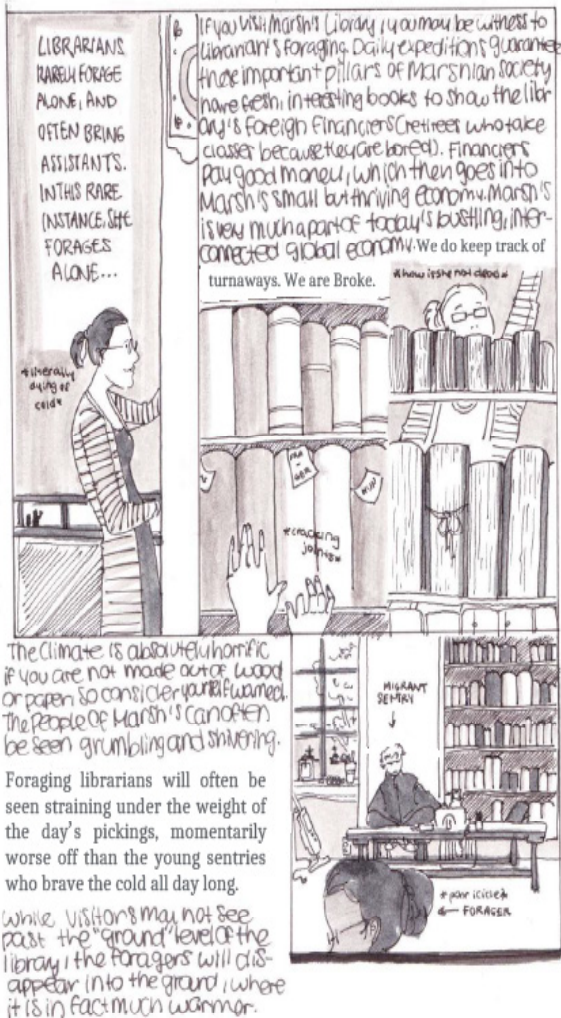 LIBRARIANS
RARELY FORAGE
ALONE, AND
OFTEN BRING
ASSISTANTS.
IN THIS RARE
INSTANCE, SHE
FORAGES
ALONE...
If you visit Marsh's Library, you may be witness to
librarian's foraging. Daily expeditions guarantee
these important pillars of Marshian society
have fresh, interesting books to show the libr
ary's Foreign Financiers (retirees who take
classes because they are bored). Financiers
pay good money, which then goes into
Marsh's small but thriving economy. Marsh's
is very much a part of today's bustling, inter-
connected global economy. We do keep track of
turnaways. We are Broke.
*literally
dying of
cold*
FRA
GER
MUN
*cracking
joints*
*how is she not dead*
The Climate is absolutely horrific
if you are not made out of wood
or paper, so consider yourself warned.
The People of Marsh's can often
be seen grumbling and shivering.
Foraging librarians will often be
seen straining under the weight of
the day's pickings, momentarily
worse off than the young sentries
who brave the cold all day long.
While visitors may not see
past the "ground" level of the
library, the foragers will dis-
appear into the ground, where
it is in fact much warmer.
MIGRANT
SENTRY
FORAGER